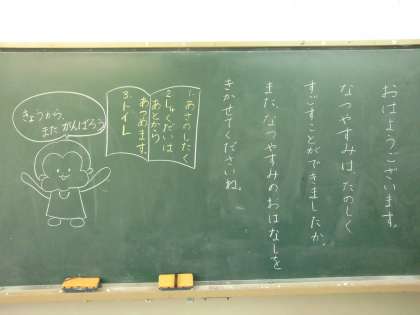 おはようございます。
なつやすみは、たのしく
すごすことができましたか。
また、なつやすみのおはなしを
きかせてくださいね。
1.あさのしたく
2.しゅくだいは
あとから
あつめます。
3.トイレ
きょうから、
また がんばろう